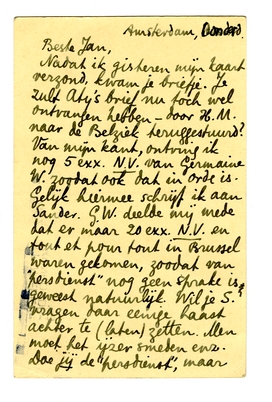 Amsterdam, Donderd.
Beste Jan,
Nadat ik gisteren mijn kaart
verzond, kwam je briefje. Je
zult Aty's brief nu toch wel
ontvangen hebben – door H.M.
naar de Belziek teruggestuurd?
Van mijn kant, ontving ik
nog 5 exx. N.V. van Germaine
W. zoodat ook dat in orde is.
Gelijk hiermee schrijf ik aan
Sander. G.W. deelde mij mede
dat er maar 20 exx. N.V. en
tout et pour tout in Brussel
waren gekomen, zoodat van
"persdienst" nog geen sprake is
geweest natuurlijk. Wil je S.
vragen daar eenige haast
achter te (laten) zetten. Men
moet het ijzer smeden enz.
Doe jij de "persdienst", maar